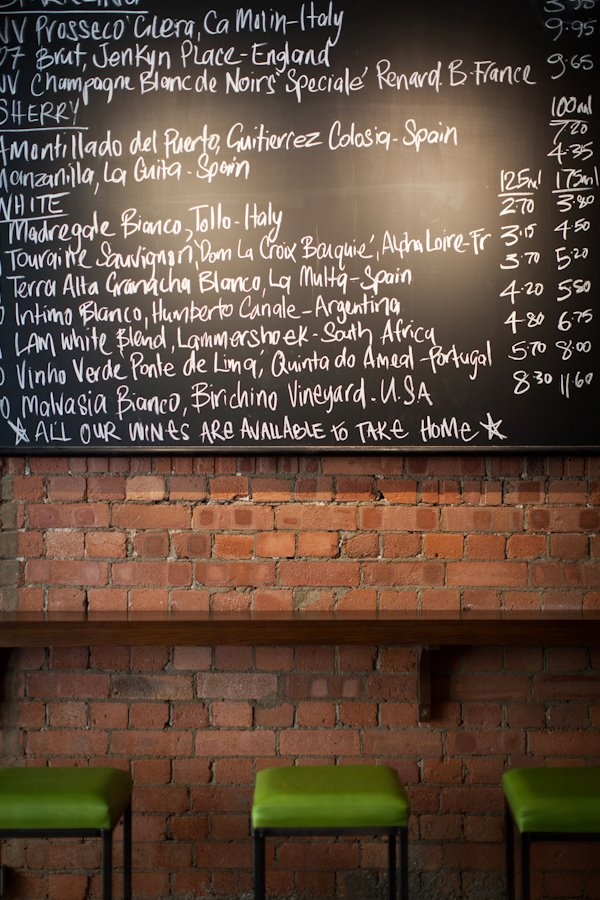 NV Prosseco 'Glera, Ca Molin - Italy
07 Brut, Jenkyn Place - England 9.95
NV Champagne Blanc de Noirs 'Speciale' Renard. B. France 9.65
SHERRY 100ml
Amontillado del Puerto, Guitierrez Colosia - Spain 7.20
Manzanilla, La Guita - Spain 4.35
WHITE 125ml 175ml
Madregale Bianco, Tollo - Italy 2.70 3.80
Touraine Sauvignon, 'Dom La Croix Bouquie', Alpha Loire - Fr 3.15 4.50
Terra Alta Granacha Blanco, La Multa - Spain 3.70 5.20
Intimo Blanco, Humberto Canale - Argentina 4.20 5.80
LAM White Blend, Lammershoek - South Africa 4.80 6.75
Vinho Verde 'Ponte de Lima', Quinta do Ameal - Portugal 5.70 8.00
Malvasia Bianco, Birichino Vineyard. U.S.A 8.30 11.60
☆ ALL OUR WINES ARE AVAILABLE to TAKE HOME ☆